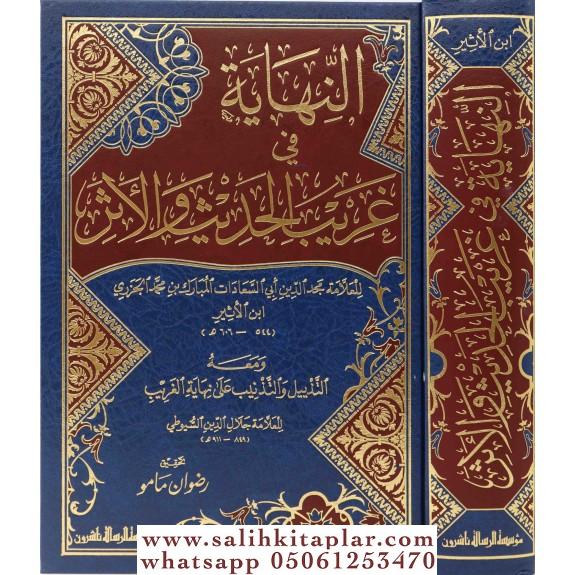 النِّهَايَة
في
غَرِيْبِ الحَدِيْثِ وَالأَثَرِ
لِلعَلَّامَة مَجْدِ الدِّين أَبي السَّعَادَات المُبارَك بن محمَّد الجَزَري
ابن الأثِير
(٥٤٤ - ٦٠٦ هـ)
وَمَعَهُ
التَّذْيِيل وَالتَّذْنِيب عَلى نِهَايَةِ الغَرِيب
لِلعَلَّامَة جَلَال الدِّين السُّيوطي
(٨٤٩ - ٩١١ هـ)
تحقيق
رضوان مامو
ابن الأثِير
النِّهَايَة في غَرِيْبِ الحَدِيْثِ وَالأَثَرِ
مؤسسة الرسالة ناشرون
www.salihkitaplar.com
whatsapp 05061253470